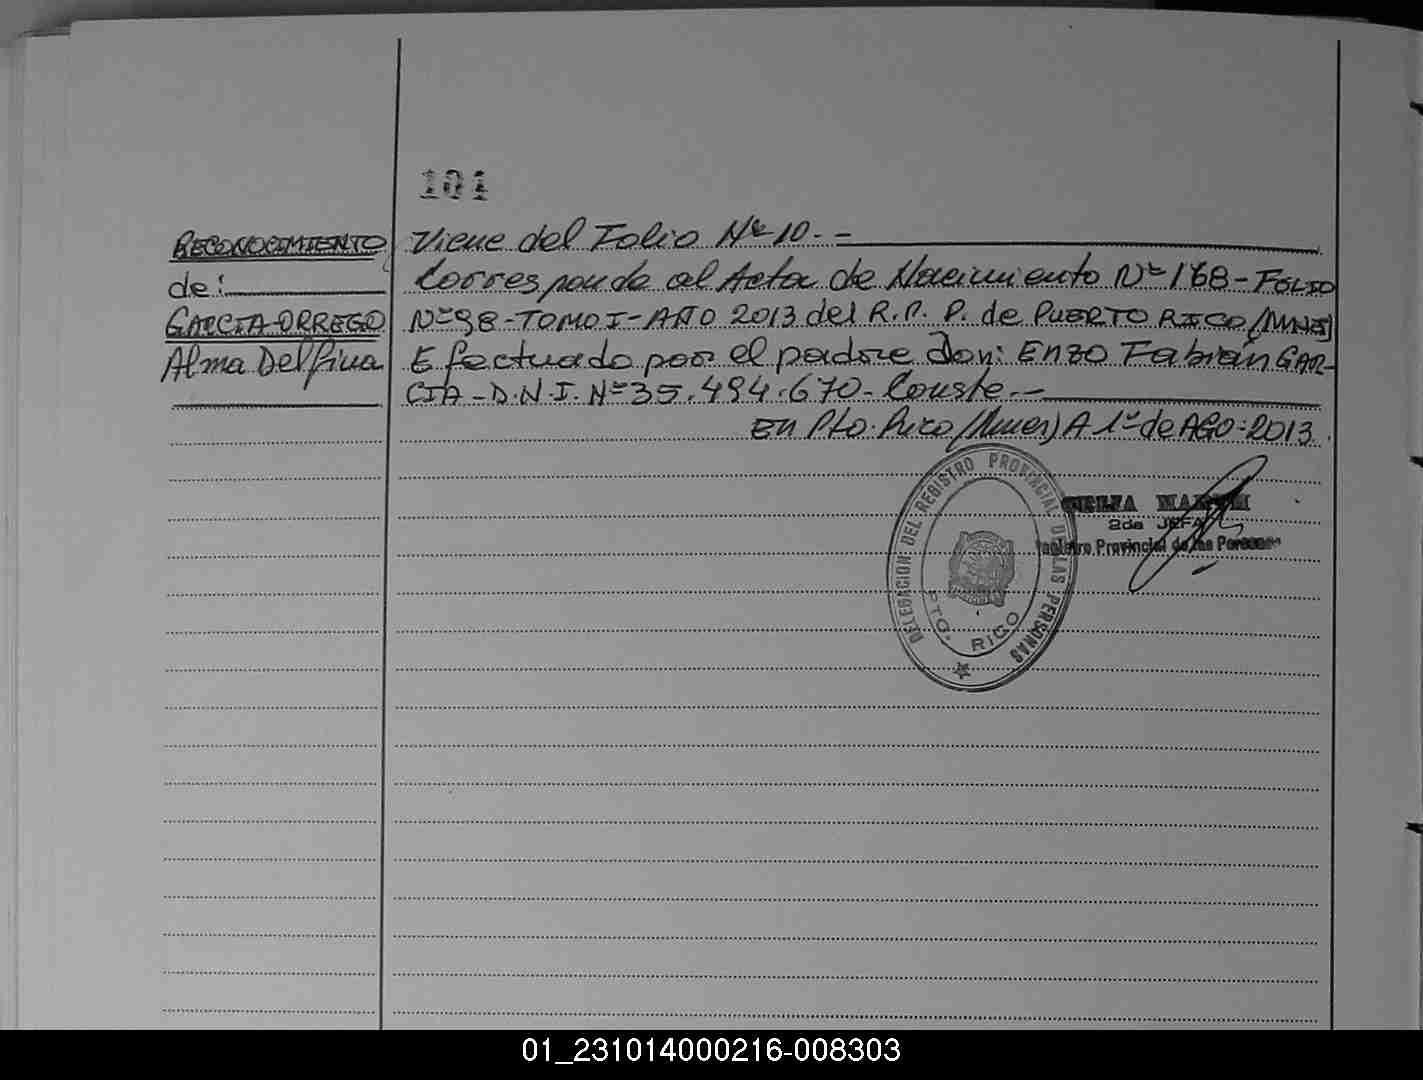 101
RECONOCIMIENTO
de:
GARCIA-ORREGO
Alma Delfina
Viene del Folio Nº 10.-
Corresponde al Acta de Nacimiento Nº 168-FOLIO
Nº 98-TOMO I-AÑO 2013 del R.P.P. de PUERTO RICO (MNES)
Efectuado por el padre Don: ENZO Fabián GAR-
CIA-D.N.I. Nº 35.494.670-Conste.-
En Pto. Rico (Mnes) A 1º de AGO-2013.
DELEGACION DEL REGISTRO PROVINCIAL DE LAS PERSONAS
PTO. RICO
2da JEFA
Registro Provincial de las Personas
01_231014000216-008303